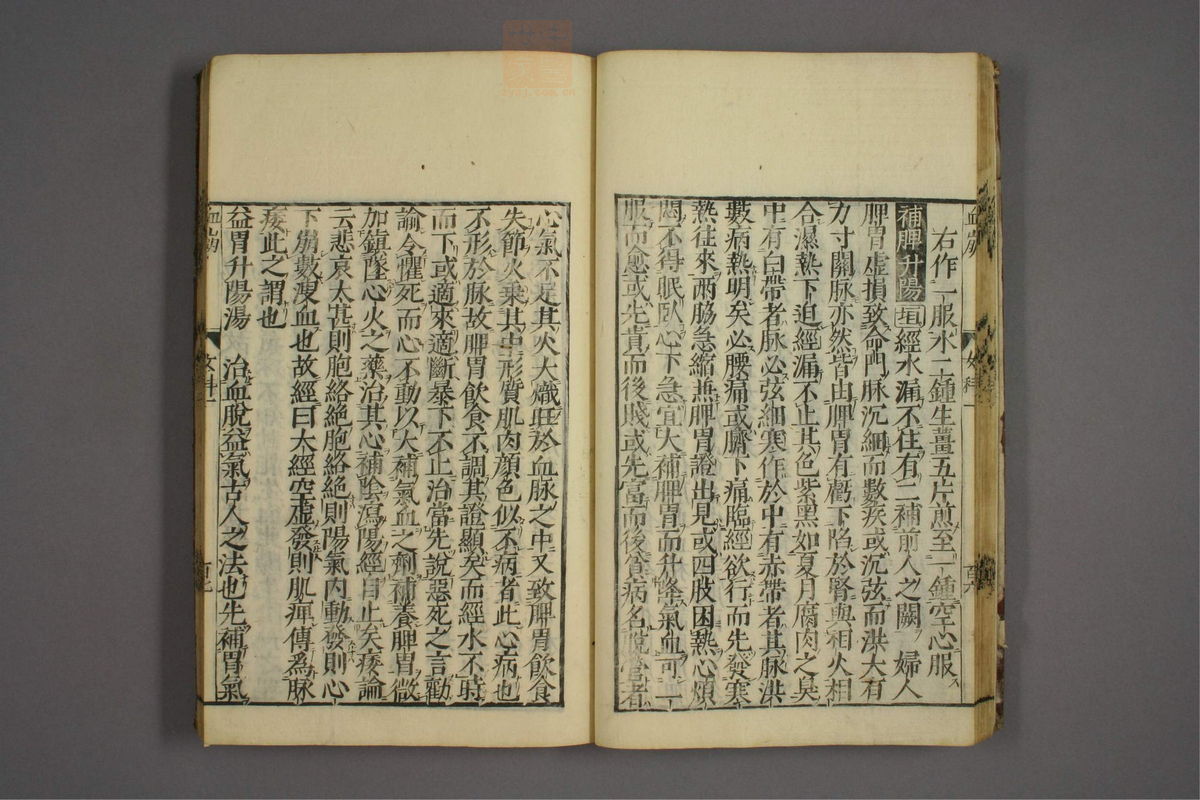 右作一服水二鍾生薑五片煎至一鍾空心服
補脾升陽 垣 經水漏不住有二補前人之闕 婦人
脾胃虛損致命門脉沉細而數疾或沉弦而洪大有
力寸關脉亦然皆由脾胃有虧下陷於腎與相火相
合濕熱下迫經漏不止其色紫黑如夏月腐肉之臭
中有白帶者脉必弦細寒作於中有赤帶者其脉洪
數病熱明矣必腰痛或臍下痛臨經欲行而先發寒
熱往來兩脇急縮兼脾胃證出見或四肢困熱心煩
悶不得眠臥心下急宜大補脾胃而升降氣血可一
服而愈或先貴而後賤或先富而後貧病名脫營者
血崩
女科
心氣不足其火大熾旺於血脉之中又致脾胃飲食
失節火乘其中形質肌肉顏色似不病者此心病也
不形於脉故脾胃飲食不調其證顯矣而經水不時
而下或適來適斷暴下不止治當先說惡死之言勸
諭令懼死而心不動以大補氣血之劑補養脾胃微
加鎮墜心火之藥治其心補陰瀉陽經自止矣痿論
云悲哀太甚則胞絡絕胞絡絕則陽氣內動發則心
下崩數溲血也故經曰大經空虛發則肌痺傳為脉
痿此之謂也
益胃升陽湯 治血脫益氣古人之法也先補胃氣
血崩
女科